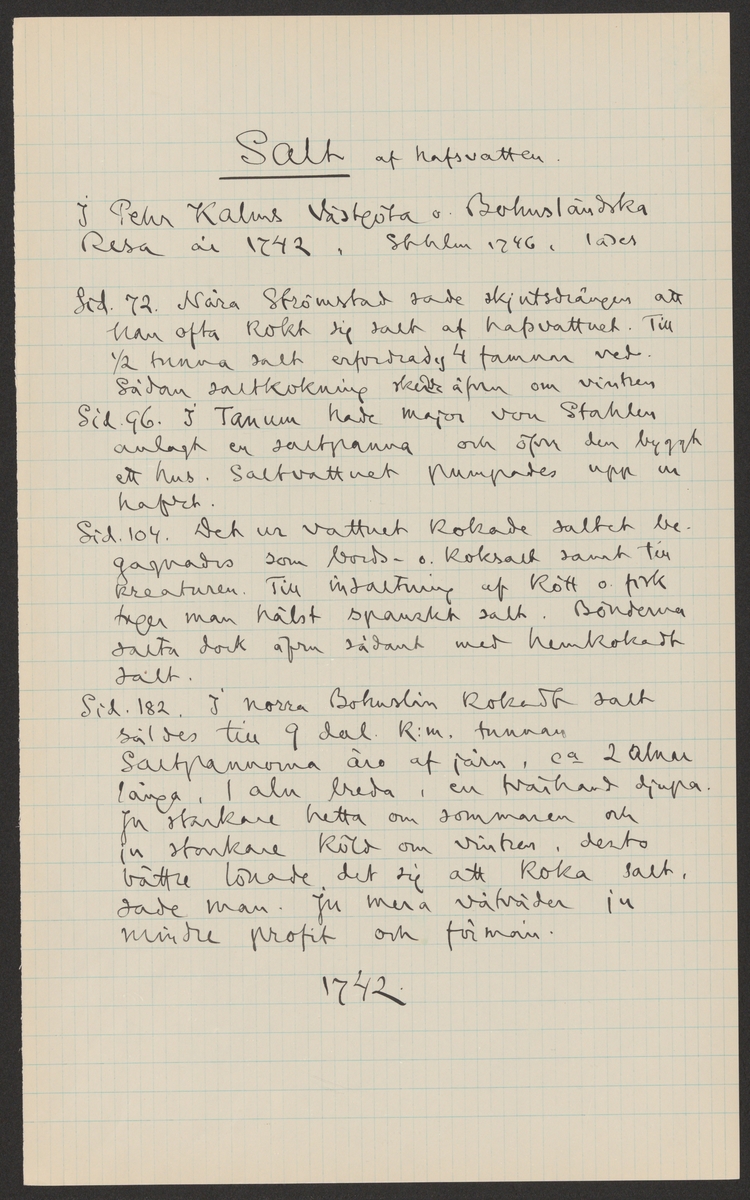 Salt af hafsvatten.
I Pehr Kalms Västgöta o. Bohusländska
Resa år 1742, Sthlm 1746, läses
Sid. 72. Nära Strömstad sade skjutsdrängen att
han ofta kokt sig salt af hafsvattnet. Till
1/2 tunna salt erfordrades 4 famnar ved.
Sådan saltkokning skedde äfven om vintren
Sid. 96. I Tanum hade major von Stahlen
anlagt en saltpanna och öfver den byggt
ett hus. Saltvattnet pumpades upp ur
hafvet.
Sid. 104. Det ur vattnet kokade saltet be-
gagnades som bords- o. koksalt samt till
kreaturen. Till insaltning af kött o. fisk
tager man hälst spanskt salt. Bönderna
salta dock äfven sådant med hemkokadt
salt.
Sid. 182. I norra Bohuslän kokadt salt
såldes till 9 dal. K:m. tunnan
Saltpannorna äro af järn, ca 2 alnar
långa, 1 aln breda, en tvärhand djupa.
Ju starkare hetta om sommaren och
ju starkare köld om vintren, desto
bättre lönade det sig att koka salt,
sade man. Ju mera våtväder ju
mindre profit och förmån.
1742.